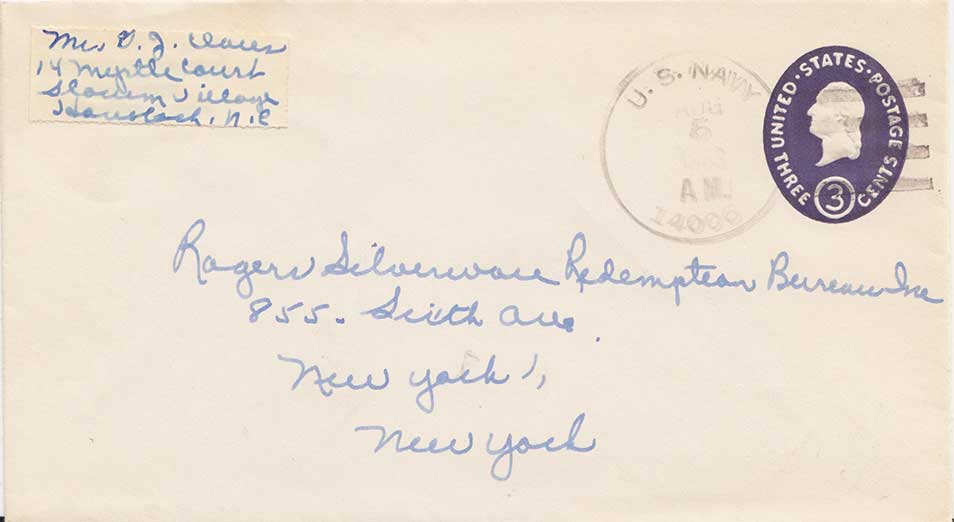 Mrs D. J.
14 Myrtle Court
Slocum Village
Havelock, N.C
U.S. NAVY
AUG
5
A.M.
14000
UNITED · STATES · POSTAGE
THREE CENTS
3
Rogers Silverware Redemption Bureau Inc
855. Sixth Ave.
New York 1,
New York